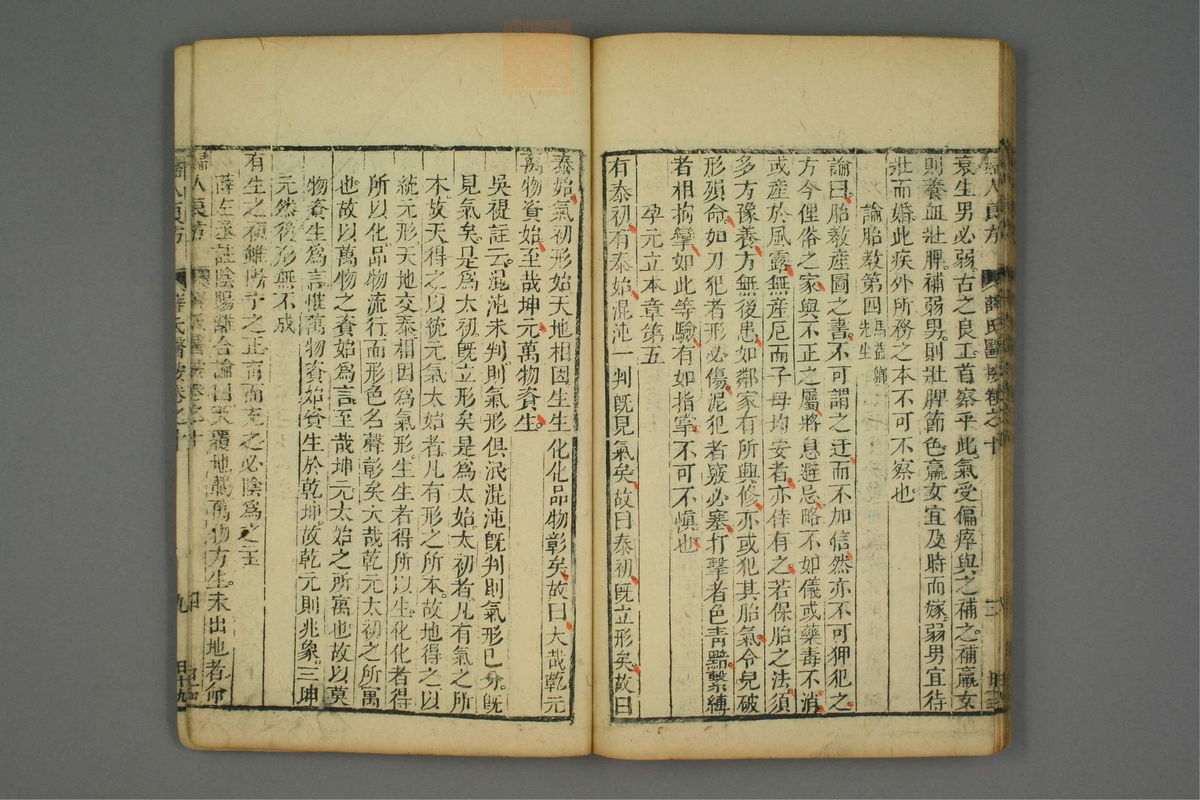 婦人良方 薛氏醫按卷之十
衰生男必弱古之良工首察乎此氣受偏瘁與之補之補羸女
則養血壯脾補弱男則壯脾節色羸女宜及時而嫁弱男宜待
壯而婚此疾外所務之本不可不察也
論胎教第四馬益卿先生
論曰胎教產圖之書不可謂之迂而不加信然亦不可狎犯之
方今俚俗之家與不正之屬將息避忌略不如儀或藥毒不消
或産於風露無産厄而子母均安者亦倖有之若保胎之法須
多方豫養方無後患如鄰家有所興修亦或犯其胎氣令兒破
形殞命如刀犯者形必傷泥犯者竅必塞打擊者色青黯繫縛
者相拘攣如此等驗有如指掌不可不慎也
孕元立本章第五
有泰初有泰始混沌一判旣見氣矣故曰泰初旣立形矣故曰
泰始氣初形始天地相因生生化化品物彰矣故曰大哉乾元
萬物資始至哉坤元萬物資生
吳禔註云混沌未判則氣形俱泯混沌旣判則氣形已分旣
見氣矣是爲太初旣立形矣是爲太始太初者凡有氣之所
本故天得之以統元氣太始者凡有形之所本故地得之以
統元形天地交泰相因爲氣形生生者得所以生化化者得
所以化品物流行而形色名聲彰矣大哉乾元太初之所寓
也故以萬物之資始爲言至哉坤元太始之所寓也故以萬
物資生爲言惟萬物資始資生於乾坤故乾元則兆象三坤
元然後形無不成
有生之初雖陽予之正育而充之必陰爲之主
薛左丞註陰陽離合論曰天覆地載萬物方生未出地者命
婦人良方 薛氏醫按卷之十 九